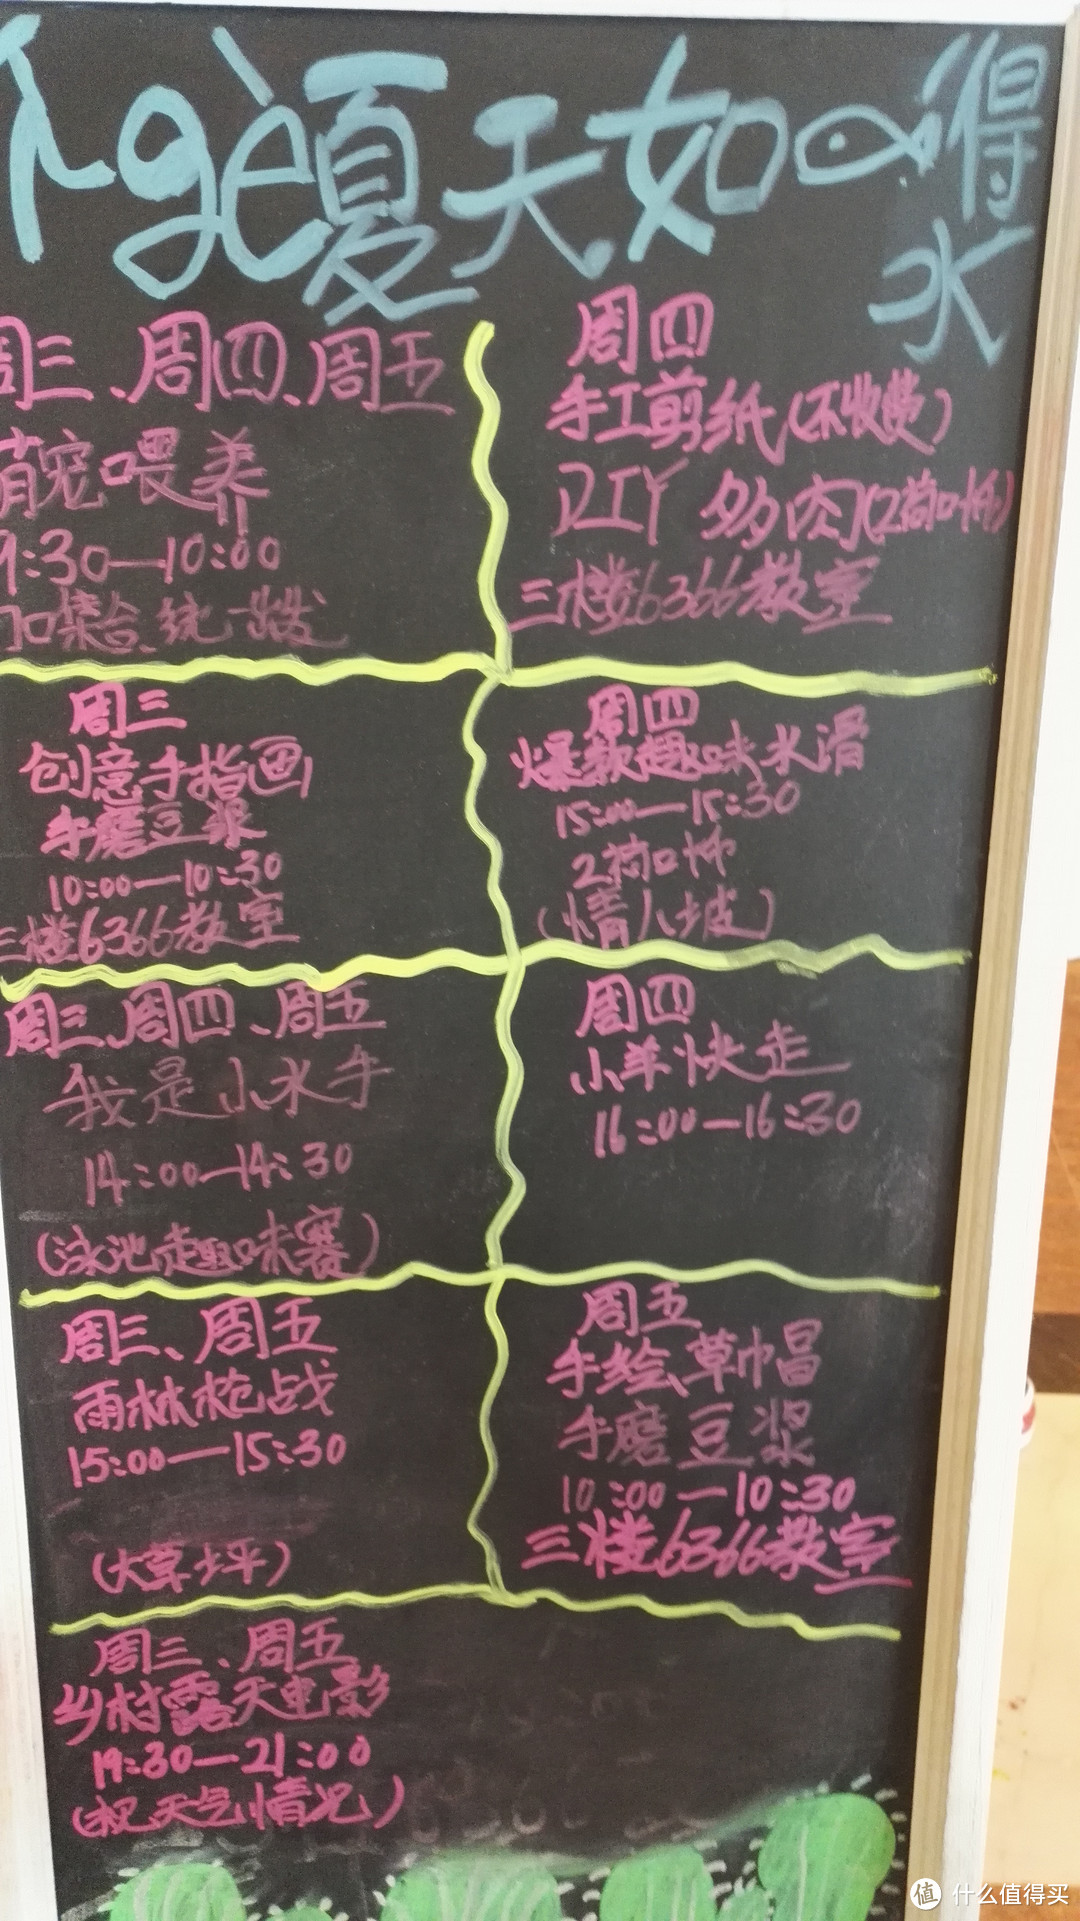 个gè夏天如得
水
周三、周四、周五
萌宠喂养
9:30—10:00
口集合统一出发
周三
创意手指画
手磨豆浆
10:00—10:30
三楼6366教室
周三、周四、周五
我是小水手
14:00—14:30
(泳池趣味赛)
周三、周五
雨林枪战
15:00—15:30
(大草坪)
周三、周五
乡村露天电影
19:30—21:00
(视天气情况)
周四
手工剪纸(不收费)
DIY 多肉(2荷口币)
三楼6366教室
周四
爆款趣味水滑
15:00—15:30
2荷口币
(情人坡)
周四
小羊快走
16:00—16:30
周五
手绘草帽
手磨豆浆
10:00—10:30
三楼6366教室
值 什么值得买